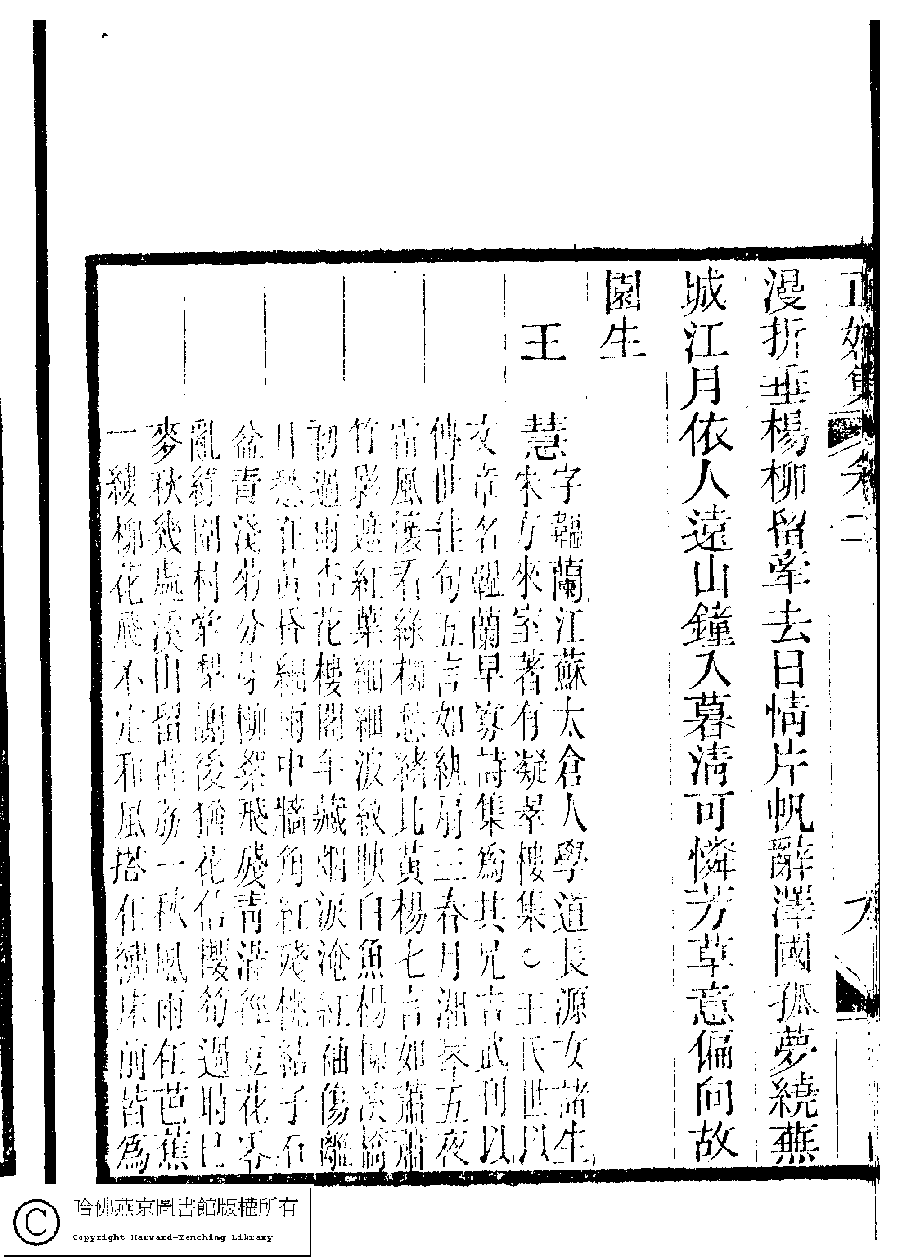 正始集 卷二
漫折垂楊柳留牽去日情片帆辭澤國孤夢繞蕪
城江月依人遠山鐘入暮清可憐芳草意偏向故
園生
王慧
字韞蘭江蘇太倉人學道長源女諸生
朱方來室著有凝翠樓集○王氏世以
文章名韞蘭早寡詩集為其兄吉武刊以
傳世佳句五言如紈扇三春月湘琴五夜
當風懷看綠柳愁緒比黃楊七言如蕭蕭
竹影遮紅葉細細波紋映白魚楊柳溪橋
初過雨杏花樓閣半藏烟淚淹紅袖傷離
日愁在黃昏細雨中牆角紅殘桃結子石
盆青淺菊分芽柳絮飛殘青滿徑豆花零
亂綠圍村棠梨謝後猶花信櫻筍過時已
麥秋幾處溪山留薜荔一秋風雨在芭蕉
一縷柳花飛不定和風搭在繡床前皆為
哈佛燕京圖書館版權所有
Copyright Harvard-Yenching Library